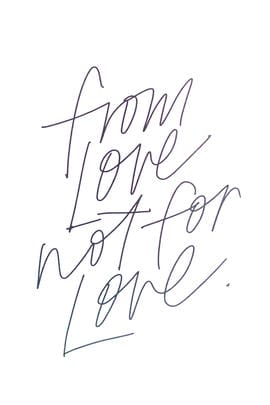 from
Love
not for
Love.